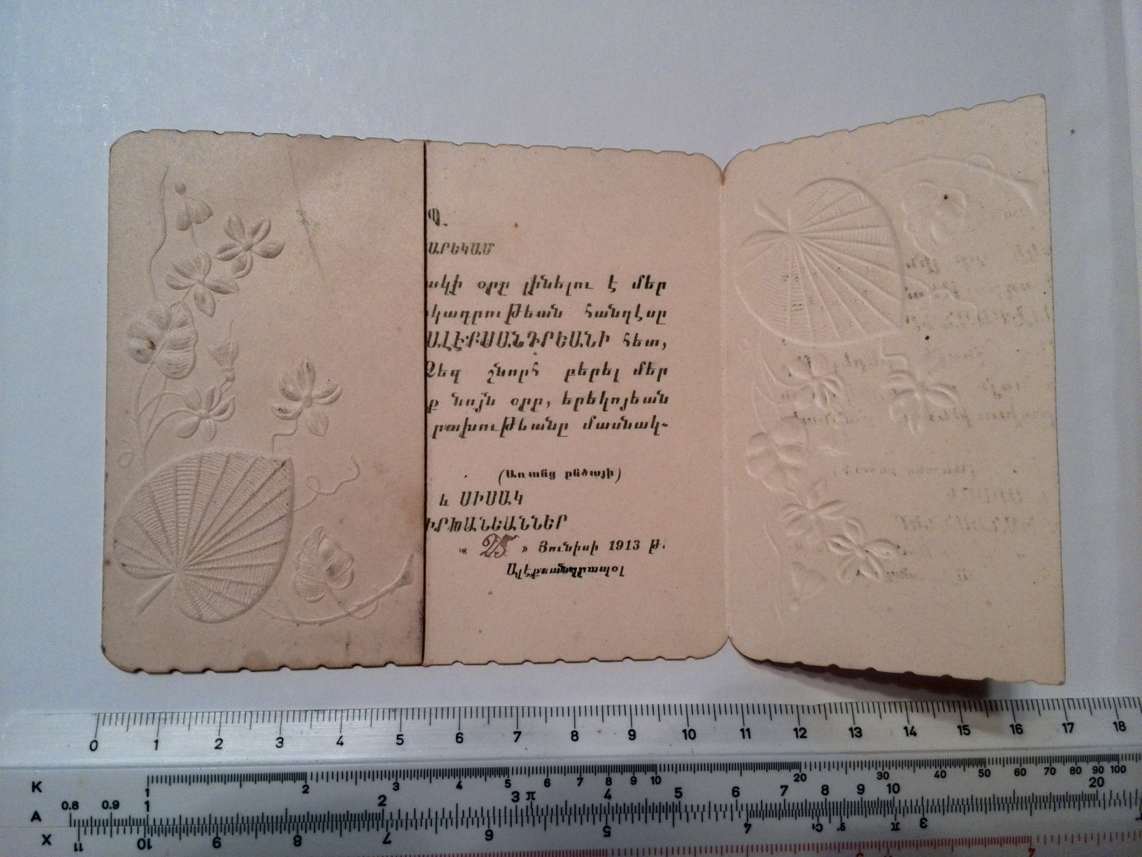 Պ.
ԱՐԵԿԱՄ
սկի օրը լինելու է մեր
կադրութեան հանդէսը
ԱԼԷՔՍԱՆԴՐԵԱՆԻ հետ,
Ձեզ շնորհ բերել մեր
ք նոյն օրը, երեկոյեան
րախութեանը մասնակ-
(Առանց ընծայի)
և ՍԻՍԱԿ
ԻՐԽԱՆԵԱՆՆԵՐ
« 25 » Յունիսի 1913 թ.
Ալէքսանդրապօլ
0 1 2 3 4 5 6 7 8 9 10 11 12 13 14 15 16 17 18
K 1 2 3 4 5 6 7 8 9 10 20 30 40 50 60 70 80 90 100
A 0.8 0.9 1 2 3 π 4 5 6 7 8 9 10 20
X 11 10 9 8 7 6 5 4 3